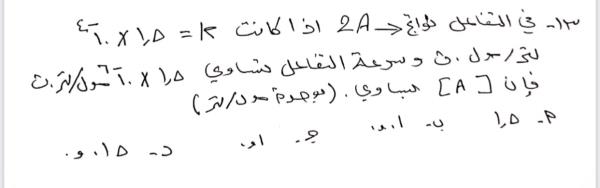 ١٣- في التفاعل 2A → نواتج اذا كانت K = ١,٥ × ١٠⁻⁴
لتر/مول.ث وسرعة التفاعل تساوي ١,٥ × ١٠⁻٦ مول/لتر.ث
فإن [A] تساوي. (بوحدة مول/لتر)
٢- ١,٥ ب- ٠,١ جـ- ٠,١ د- ٠,٠١٥